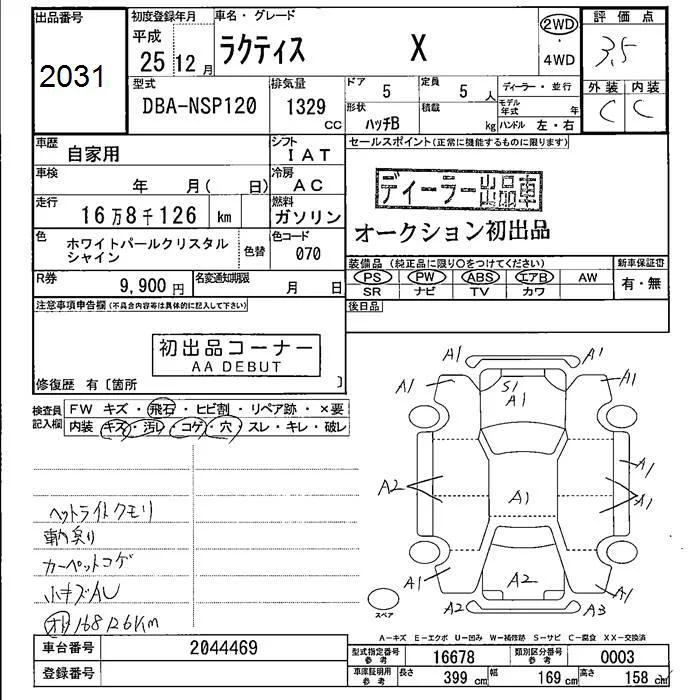 出品番号
2031
初度登録年月
平成
25 12 月
車名・グレード
ラクティス X
2WD
・
4WD
評価点
3.5
外装 内装
C C
型式
DBA-NSP120
排気量
1329
CC
ドア
5
定員
5 人
形状
ハッチB
積載
kg
ディーラー・並行
モデル年式 年
ハンドル 左・右
車歴
自家用
シフト
IAT
車検
年 月( 日)
冷房
AC
走行
16万8千126 km
燃料
ガソリン
色
ホワイトパールクリスタル
シャイン
色替
色コード
070
R券
9,900 円
名変通知期限
月 日
セールスポイント(正常に機能するものに限ります)
ディーラー出品車
オークション初出品
装備品(純正品に限り○をつけてください)
PS PW ABS エアB AW
SR ナビ TV カワ
新車保証書
有・無
後日品
注意事項申告欄(不具合内容等は具体的に記入して下さい)
初出品コーナー
AA DEBUT
修復歴 有〔箇所 〕
検査員
記入欄
FW キズ・飛石・ヒビ割・リペア跡・×要
内装 キズ・汚レ・コゲ・穴・スレ・キレ・破レ
ヘットライトクモリ
カーペットコゲ
小キズAU
168126km
A1 A1
A1 S1 A1 A1
A2 A1 A1 A1
A1 A2 A1
A2 A3
スペア
A-キズ E-エクボ U-凹み W-補修跡 S-サビ C-腐食 XX-交換済
車台番号
2044469
登録番号
型式指定番号
参考
16678
類別区分番号
参考
0003
車庫証明用
参考
長さ
399 cm
幅
169 cm
高さ
158 cm